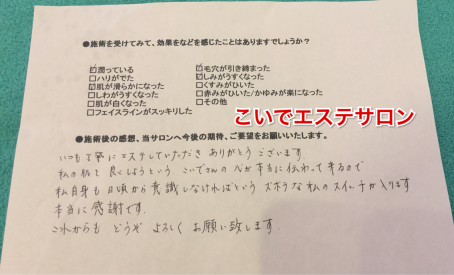 ●施術を受けてみて、効果をなどを感じたことはありますでしょうか?
☑潤っている ☑毛穴が引き締まった
□ハリがでた ☑しみがうすくなった
☑肌が滑らかになった □くすみがひいた
□しわがうすくなった □赤みがひいた/かゆみが楽になった
□肌が白くなった □その他
□フェイスラインがスッキリした
こいでエステサロン
●施術後の感想、当サロンへ今後の期待、ご要望をお願いいたします。
いつも丁寧にエステしていただき ありがとうございます
私の肌を良くしようという こいでさんの心が本当に伝わって来るので
私自身も日頃から意識しなければという ズボラな私のスイッチが入ります
本当に感謝です。
これからも どうぞ よろしく お願い致します。